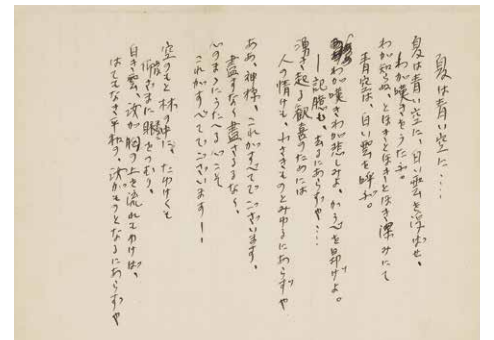 夏は青い空に……
夏は青い空に、白い雲を浮ばせ、
わが嘆きをうたふ。
わが知らぬ、とほきとほきとほき深みにて
青空は、白い雲を呼ぶ。
わが嘆きわが悲しみよ、かうべを昂げよ。
―記憶も、去るにあらずや……
湧き起る歓喜のためには
人の情けも、小さきものとみゆるにあらずや
ああ、神様、これがすべてでございます、
尽すなく尽さるるなく、
心のままにうたへる心こそ
これがすべてでございます!
空のもと林の中に、たゆけくも
仰ざまに眼をつむり、
白き雲、汝が胸の上を流れもてゆけば、
はてもなき平和の、汝がものとなるにあらずや